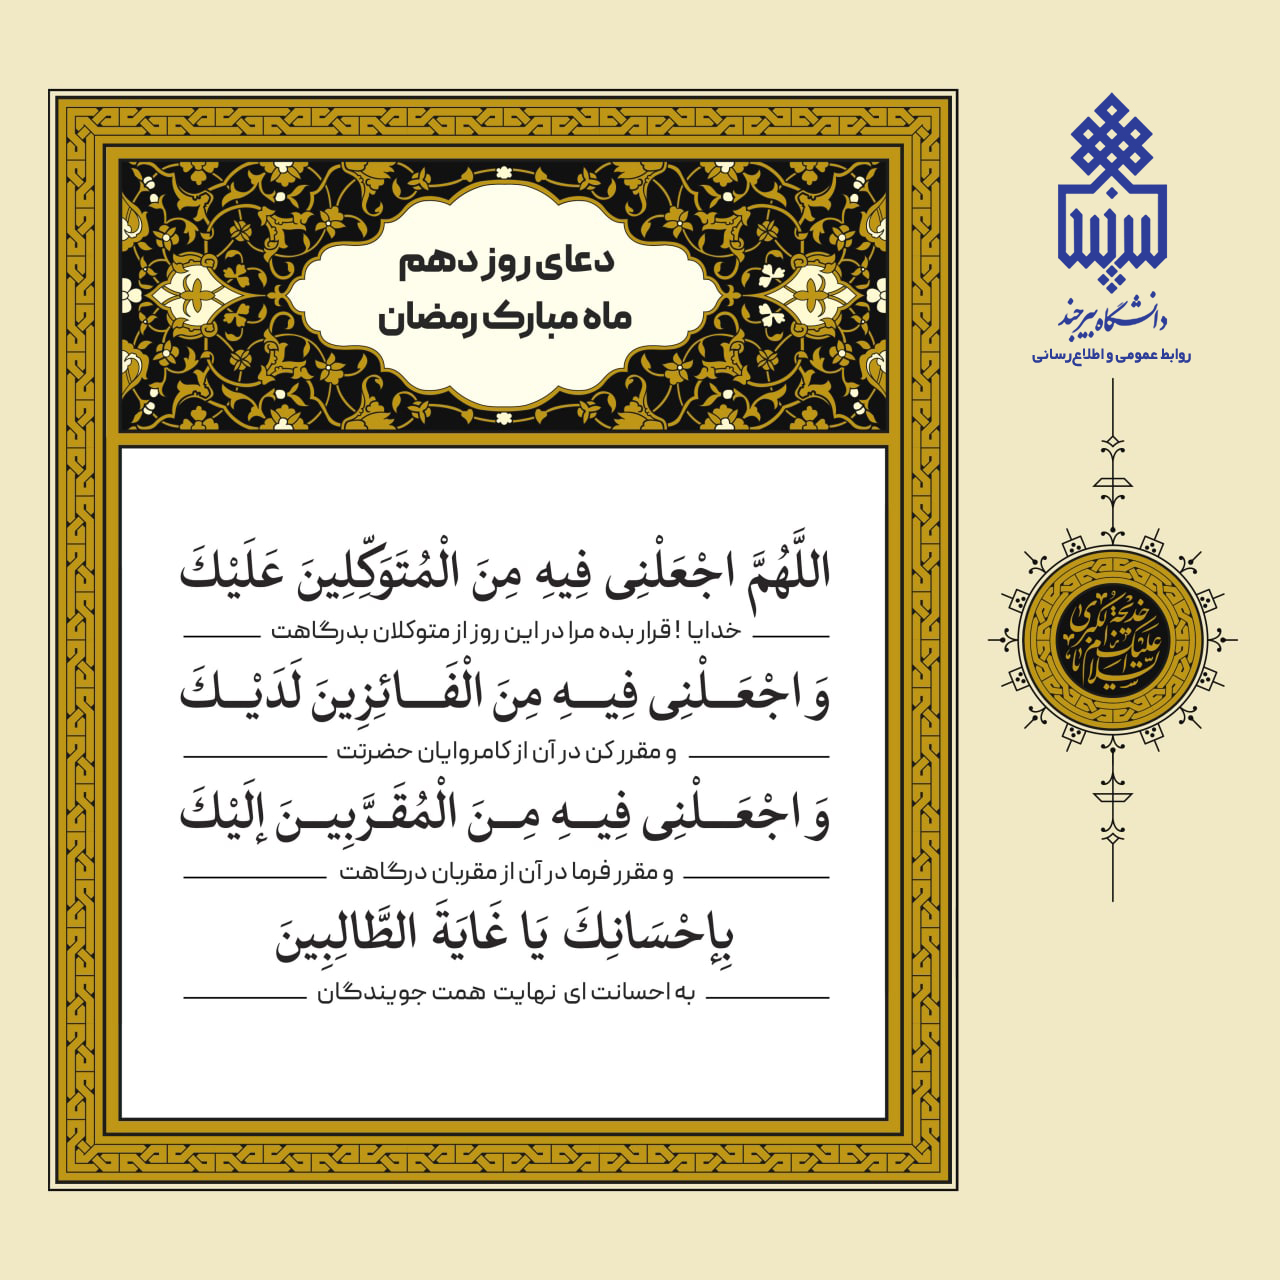 دعای روز دهم
ماه مبارک رمضان
اللَّهُمَّ اجْعَلْنِی فِیهِ مِنَ الْمُتَوَکِّلِینَ عَلَیْكَ
خدایا ! قرار بده مرا در این روز از متوکلان بدرگاهت
وَ اجْعَـلْنِی فِیـهِ مِنَ الْفَـائِزِینَ لَدَیْـكَ
و مقرر کن در آن از کامروایان حضرتت
وَ اجْعَـلْنِی فِیـهِ مِـنَ الْمُقَـرَّبِیـنَ إلَیْكَ
و مقرر فرما در آن از مقربان درگاهت
بِإحْسَانِكَ یَا غَایَةَ الطَّالِبِینَ
به احسانت ای نهایت همت جویندگان
بیرجند
دانشگاه بیرجند
روابط عمومی و اطلاع‌رسانی